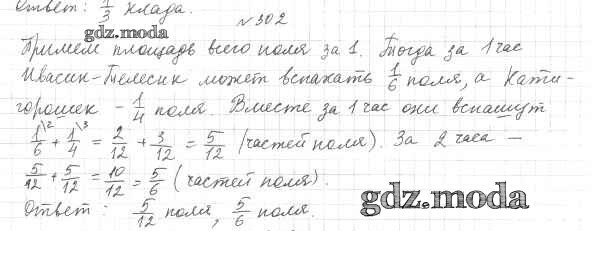 Ответ: 1/3 клада.
№302
gdz.moda
Примем площадь всего поля за 1. Тогда за 1 час
Ивасик-Телесик может вспахать 1/6 поля, а Кати-
горошек - 1/4 поля. Вместе за 1 час они вспашут
1\2/6 + 1\3/4 = 2/12 + 3/12 = 5/12 (частей поля). За 2 часа —
5/12 + 5/12 = 10/12 = 5/6 (частей поля).
Ответ: 5/12 поля, 5/6 поля.
gdz.moda